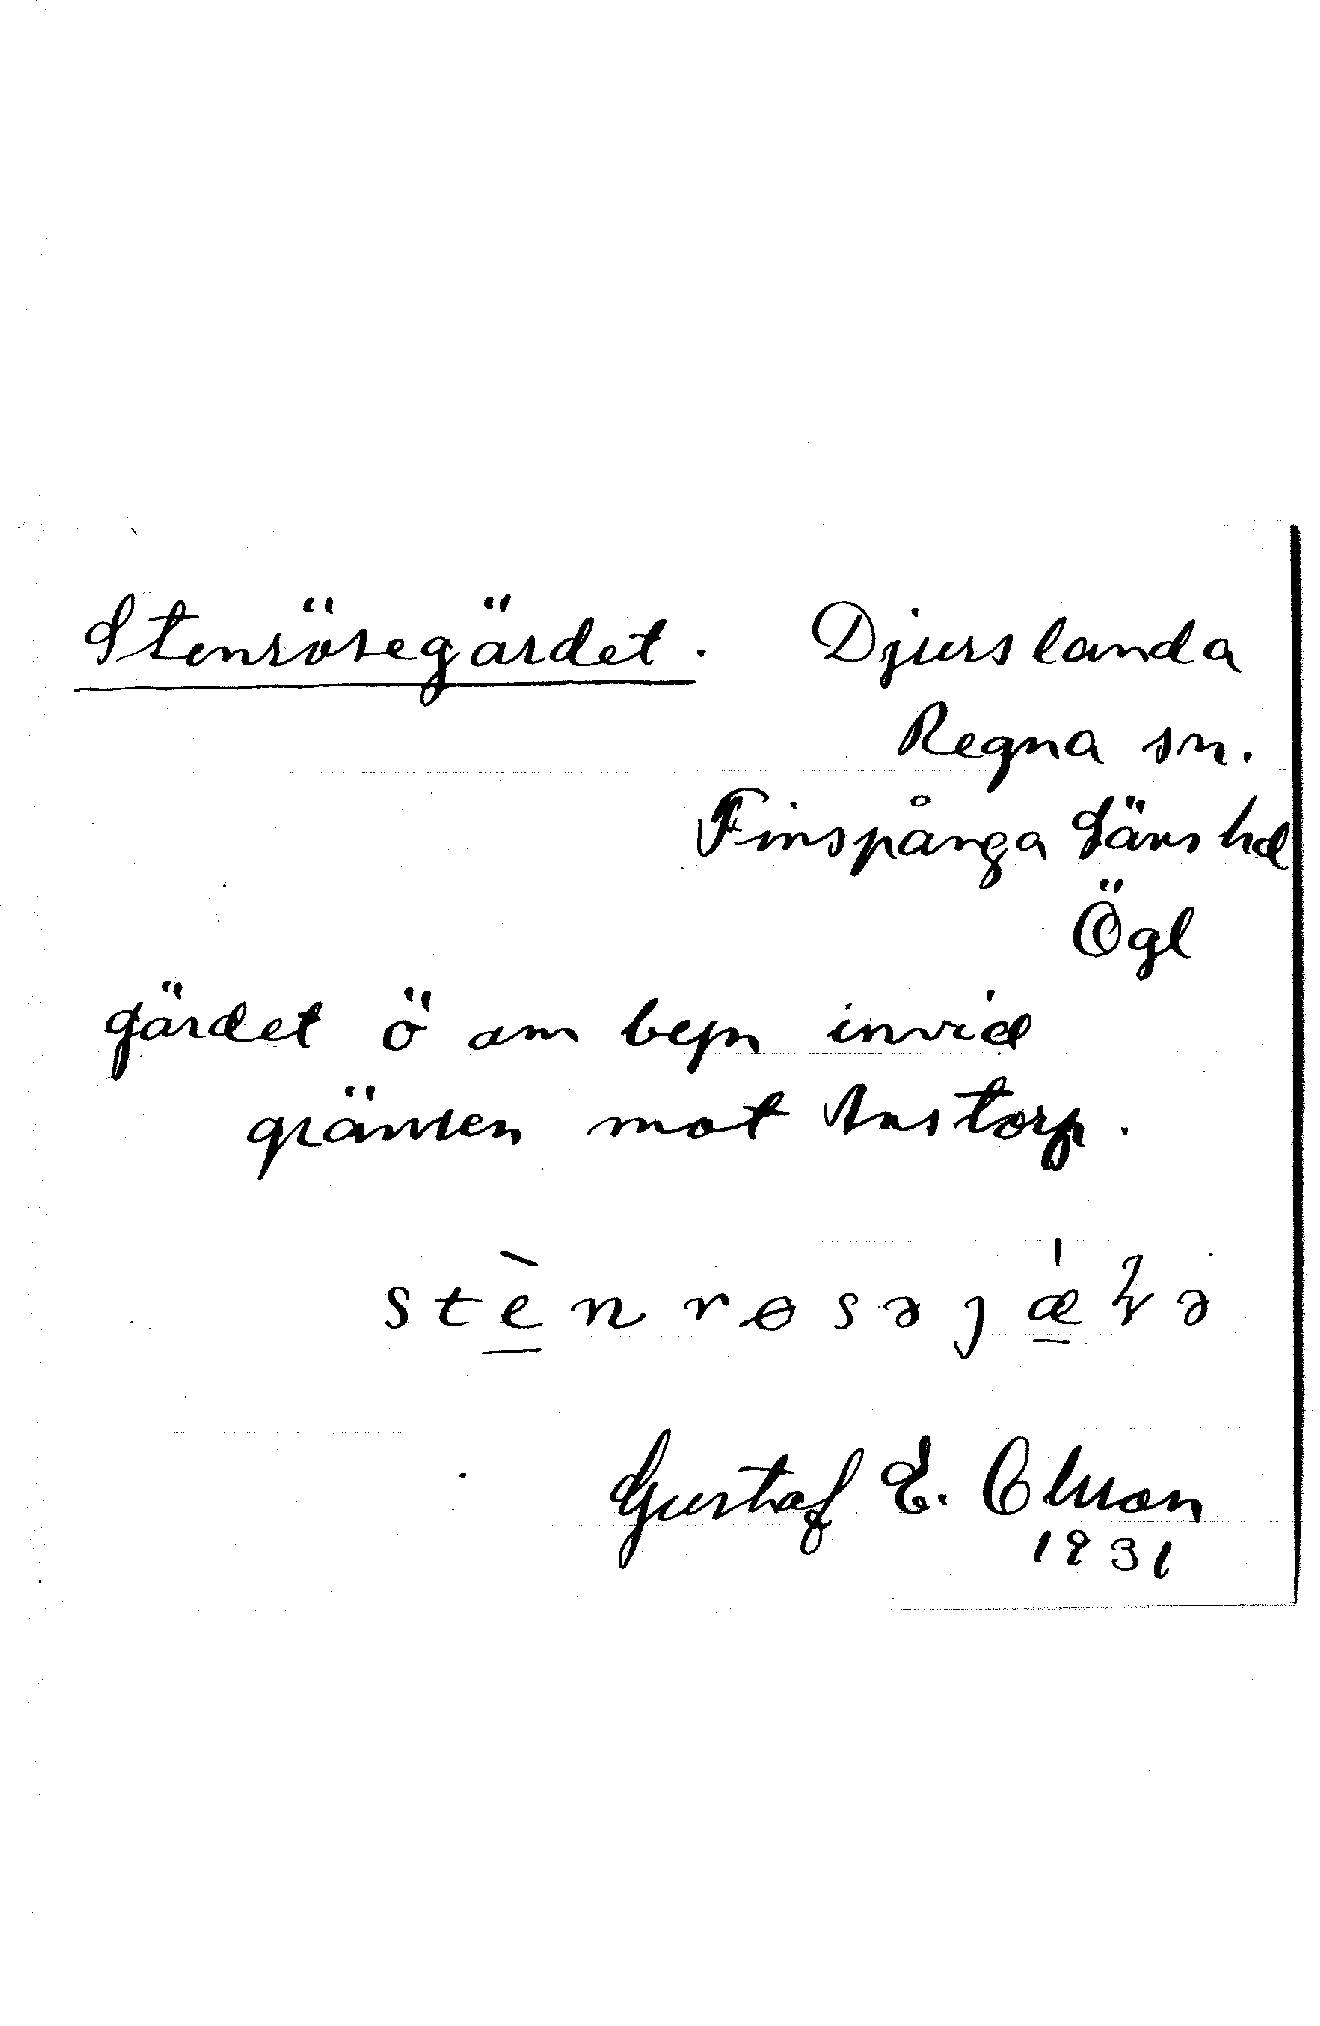 Stenrösegärdet. Djurslanda
Regna sn.
Finspånga Läns hd
Ögl
gärdet ö om bepn invid
gränsen mot Anstorp.
Gustaf E. Olsson
1931